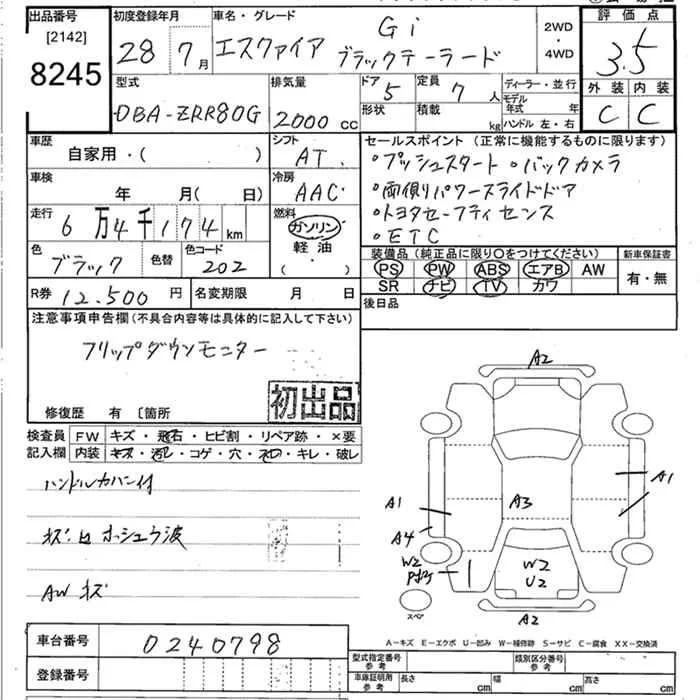 出品番号
[2142]
8245
初度登録年月
28 7月
車名・グレード
エスクァイア Gi ブラックテーラード
2WD
・
4WD
評価点
3.5
外装 内装
C C
型式
DBA-ZRR80G
排気量
2000 cc
ドア 5
定員 7人
形状
積載 kg
ディーラー・並行
モデル年式 年
ハンドル 左・右
車歴
自家用・( )
シフト
AT
セールスポイント(正常に機能するものに限ります)
・プッシュスタート ・バックカメラ
・両側パワースライドドア
・トヨタセーフティセンス
・ETC
車検
年 月(日)
冷房
AAC
走行
6万4千174km
燃料
ガソリン
軽油
( )
色
ブラック
色替
色コード
202
装備品(純正品に限り〇をつけてください)
PS PW ABS エアB AW
SR ナビ TV カワ
新車保証書
有・無
R券 12,500円
名変期限 月 日
後日品
注意事項申告欄(不具合内容等は具体的に記入して下さい)
フリップダウンモニター
初出品
修復歴 有 〔箇所
検査員記入欄
FW キズ・飛石・ヒビ割・リペア跡・×要
内装 キズ・汚レ・コゲ・穴・・キレ・破レ
ハンドルカバー付
AW キズ
A2
A1
A1
A3
A4
W2
W2
U2
A2
スペア
A-キズ E-エクボ U-凹み W-補修跡 S-サビ C-腐食 XX-交換済
車台番号
0240798
登録番号
型式指定番号 参考
類別区分番号 参考
車庫証明用 参考
長さ cm
幅 cm
高さ cm